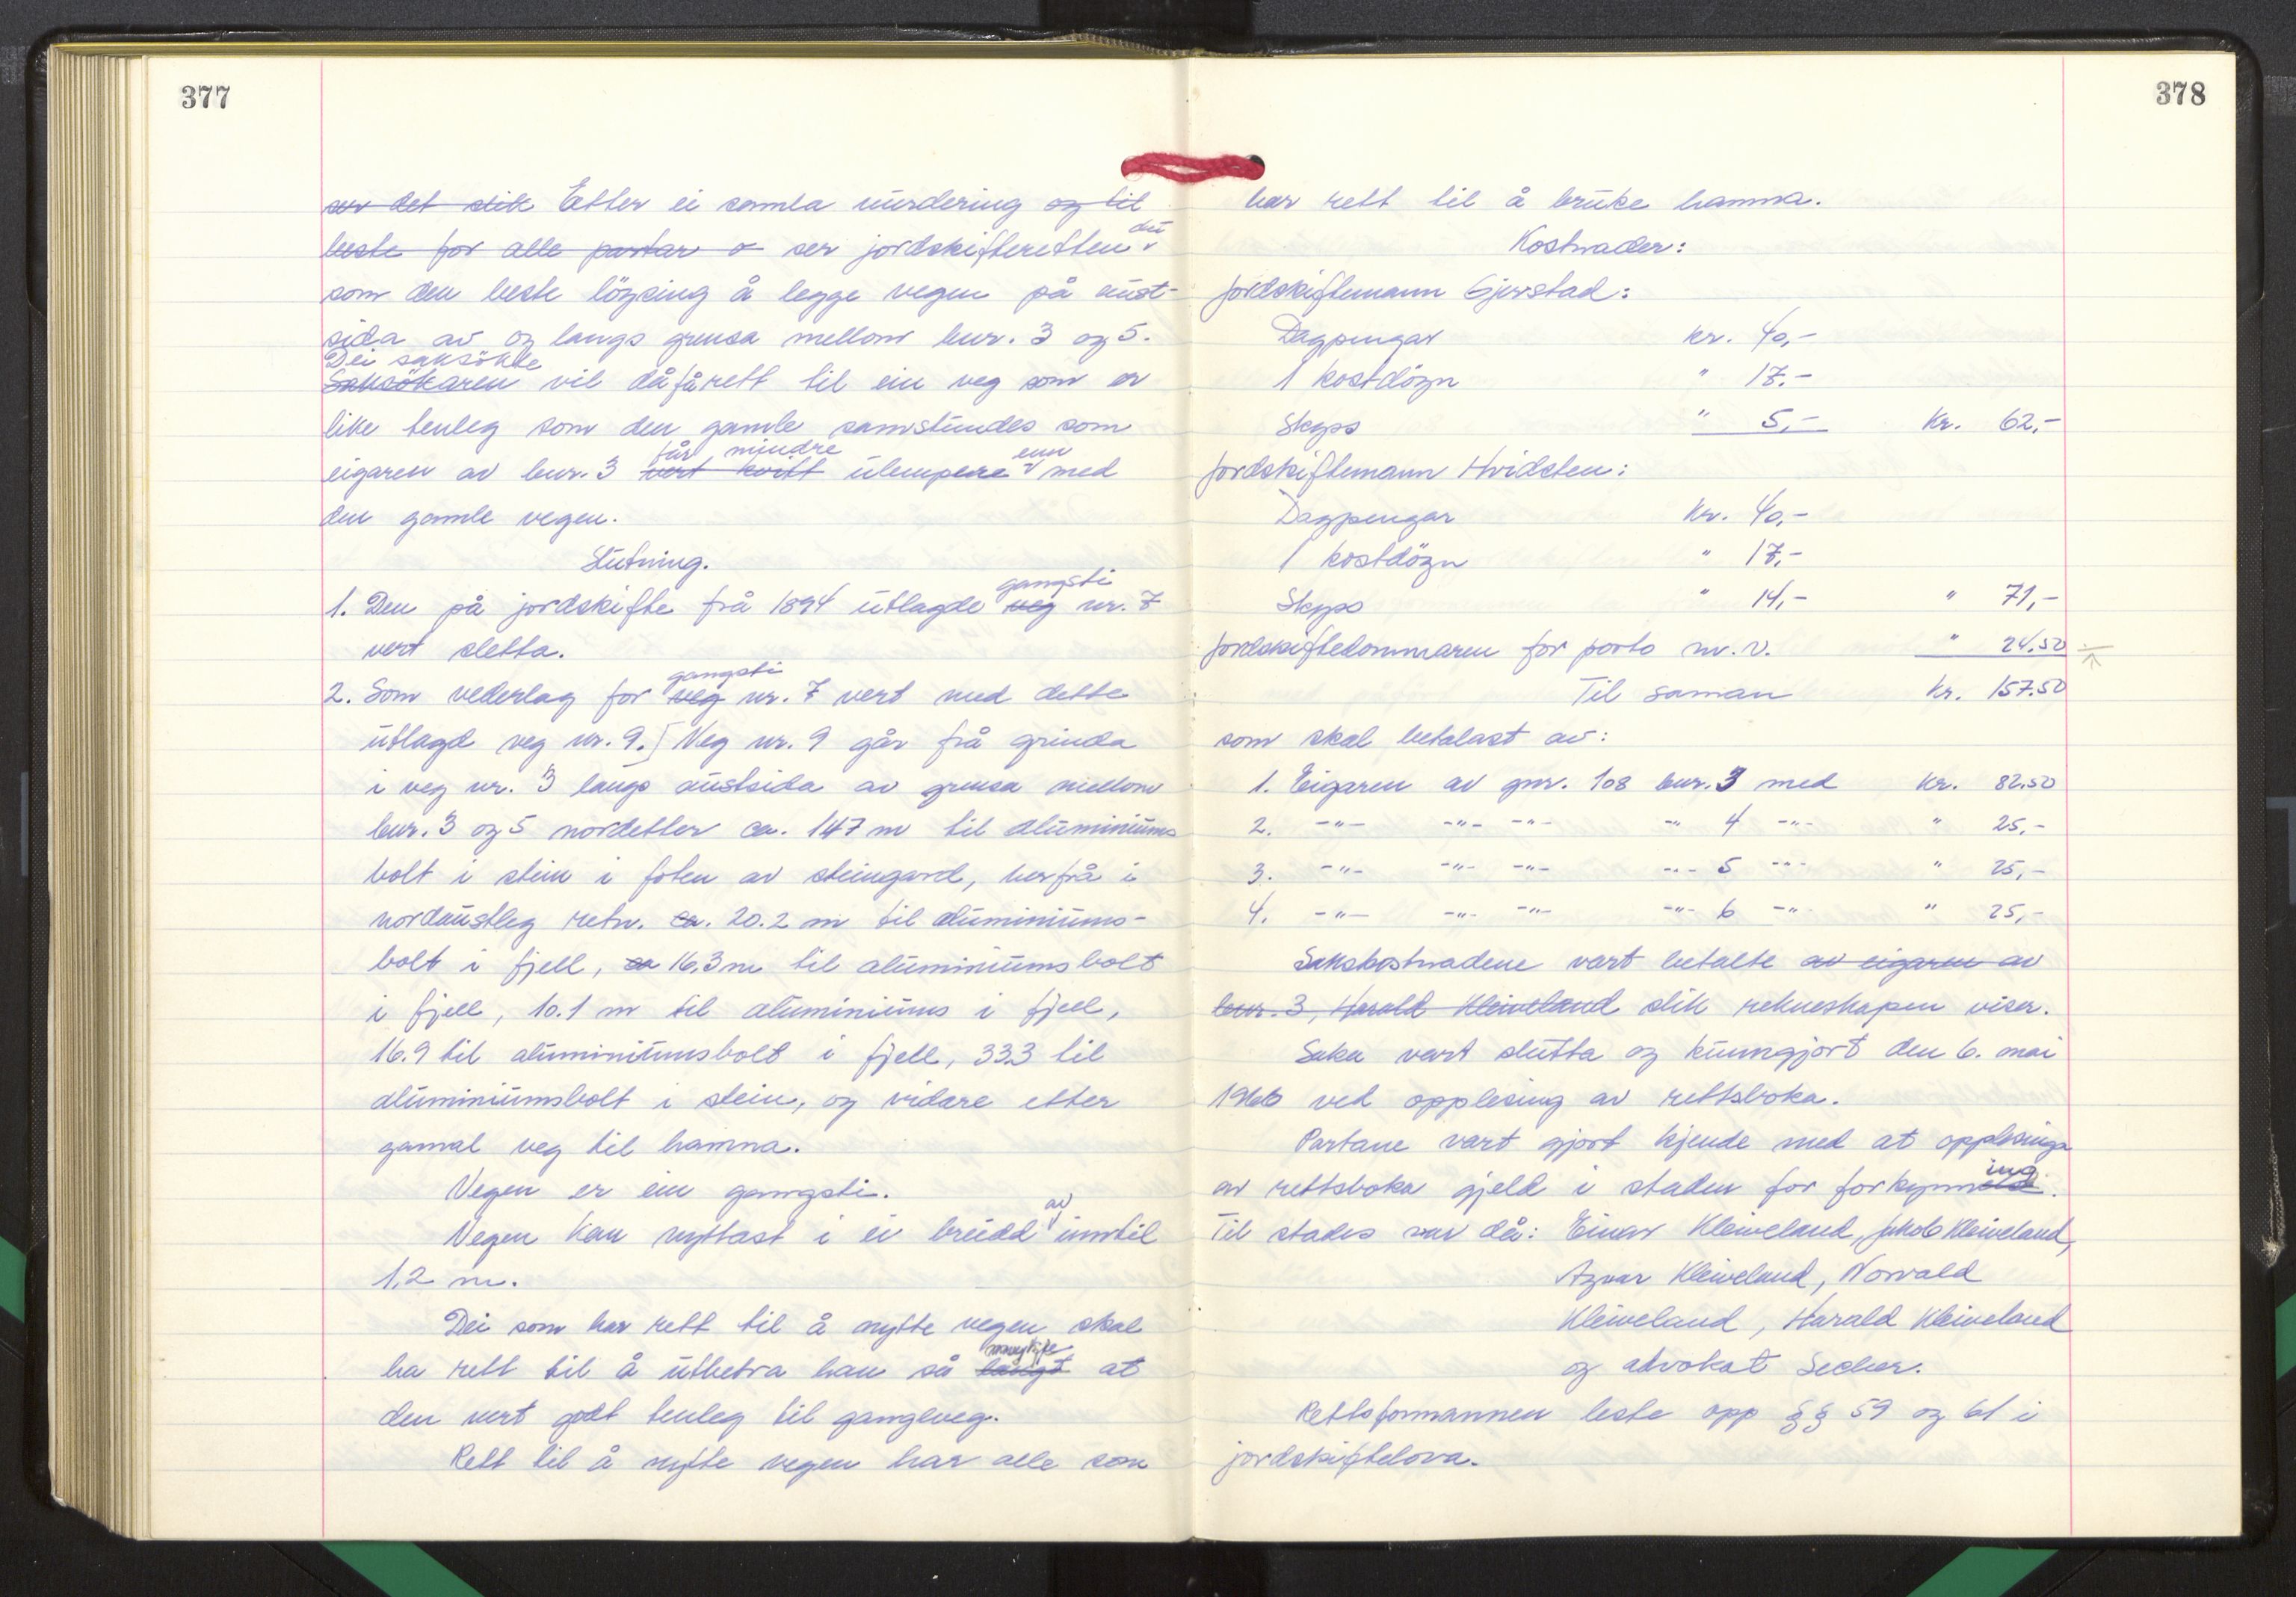 377
ser det slik Etter ei samla vurdering og til
beste for alle partar o ser jordskifteretten då
som den beste löysing å legge vegen på aust-
sida av og langs grensa mellom bnr. 3 og 5.
Dei saksökte
Saksökaren vil då få rett til ein veg som er
like tenleg som den gamle samstundes som
får mindre enn
eigaren av bnr. 3 vert kvitt ulempene med
den gamle vegen.
Slutning.
gangsti
1. Den på jordskifte frå 1894 utlagde veg nr. 7
vert sletta.
gangsti
2. Som vederlag for veg nr. 7 vert med dette
utlagd veg nr. 9. [Veg nr. 9 går frå grinda
i veg nr. 3 langs austsida av grensa mellom
bnr. 3 og 5 nordetter ca. 147 m til aluminiums
bolt i stein i foten av steingard, herfrå i
nordaustleg retn. ca. 20.2 m til aluminiums-
bolt i fjell, ca 16,3 m til aluminiumsbolt
i fjell, 10.1 m til aluminiums i fjell,
16.9 til aluminiumsbolt i fjell, 33.3 til
aluminiumsbolt i stein, og vidare etter
gamal veg til hamna.
Vegen er ein gangsti.
av
Vegen kan nyttast i ei breidd inntil
1,2 m.
Dei som har rett til å nytte vegen skal
ha rett til å utbetra han så langt at
den vert godt tenleg til gangveg.
Rett til å nytte vegen har alle som
378
har rett til å bruke hamna.
Kostnader:
Jordskiftemann Gjerstad:
Dagpengar kr. 40,-
1 kostdögn " 17.-
Skyss " 5,- Kr. 62,-
Jordskiftemann Hvidsten:
Dagpengar Kr. 40,-
1 kostdögn " 17,-
Skyss " 14,- " 71,-
Jordskiftedommaren for porto m.v. " 24.50
Til saman Kr. 157.50
som skal betalast av:
1. Eigaren av gnr. 108 bnr. 3 med Kr. 82.50
2. -"- -"- -"- -"- 4 -"- " 25,-
3. -"- -"- -"- -"- 5 -"- " 25,-
4. -"- -"- -"- -"- 6 -"- " 25,-
Sakskostnadene vart betalte av eigaren av
bnr. 3, Harald Kleiveland slik rekneskapen viser.
Saka vart slutta og kunngjort den 6. mai
1966 ved opplesing av rettsboka.
Partane vart gjort kjende med at opplesinga
ing
av rettsboka gjeld i staden for forkynnelse.
Til stades var då: Einar Kleiveland, Jakob Kleiveland,
Agvar Kleiveland, Norvald
Kleiveland, Harald Kleiveland
og advokat Secher.
Rettsformannen leste opp §§ 59 og 61 i
jordskiftelova.